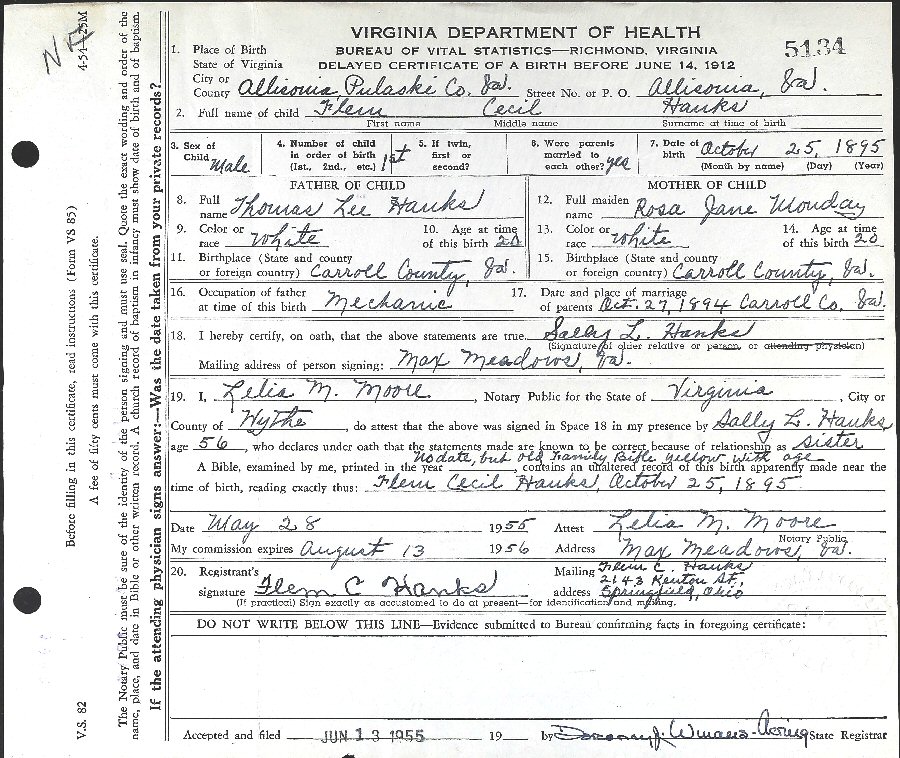 VIRGINIA DEPARTMENT OF HEALTH
BUREAU OF VITAL STATISTICS—RICHMOND, VIRGINIA
5134
DELAYED CERTIFICATE OF A BIRTH BEFORE JUNE 14, 1912
1. Place of Birth
State of Virginia
City or
County Allisonia, Pulaski Co. Va. Street No. or P. O. Allisonia, Va.
2. Full name of child Flem Cecil Hanks
First name Middle name Surname at time of birth
3. Sex of Child Male
4. Number of child in order of birth (1st., 2nd., etc.) 1st
5. If twin, first or second?
6. Were parents married to each other? yes
7. Date of birth October 25, 1895
(Month by name) (Day) (Year)
FATHER OF CHILD
8. Full name Thomas Lee Hanks
9. Color or race White 10. Age at time of this birth 20
11. Birthplace (State and county or foreign country) Carroll County, Va.
MOTHER OF CHILD
12. Full maiden name Rosa Jane Monday
13. Color or race White 14. Age at time of this birth 20
15. Birthplace (State and county or foreign country) Carroll County, Va.
16. Occupation of father at time of this birth Mechanic
17. Date and place of marriage of parents Oct. 27, 1894 Carroll Co. Va.
18. I hereby certify, on oath, that the above statements are true. Sally L. Hanks
(Signature of older relative or person, or attending physician)
Mailing address of person signing: Max Meadows, Va.
19. I, Lelia M. Moore, Notary Public for the State of Virginia, City or
County of Wythe, do attest that the above was signed in Space 18 in my presence by Sally L. Hanks
age 56, who declares under oath that the statements made are known to be correct because of relationship as sister
No date, but old family Bible yellow with age
A Bible, examined by me, printed in the year , contains an unaltered record of this birth apparently made near the
time of birth, reading exactly thus: Flem Cecil Hanks, October 25, 1895
Date May 28 1955 Attest Lelia M. Moore
Notary Public
My commission expires August 13 1956 Address Max Meadows, Va.
20. Registrant's signature Flem C Hanks
Mailing address Flem C. Hanks
2143 Kenton St.,
Springfield, Ohio
(If practical) Sign exactly as accustomed to do at present—for identification and mailing.
DO NOT WRITE BELOW THIS LINE—Evidence submitted to Bureau confirming facts in foregoing certificate:
Accepted and filed JUN 13 1955 19 by State Registrar
4-54-25M
V.S. 82
Before filling in this certificate, read instructions (Form VS 85)
A fee of fifty cents must come with this certificate.
The Notary Public must be sure of the identity of the person signing and must use seal. Quote the exact wording and order of the
name, place, and date in Bible or other written record. A church record of baptism in infancy must show date of birth and of baptism.
If the attending physician signs answer:—Was the date taken from your private records?